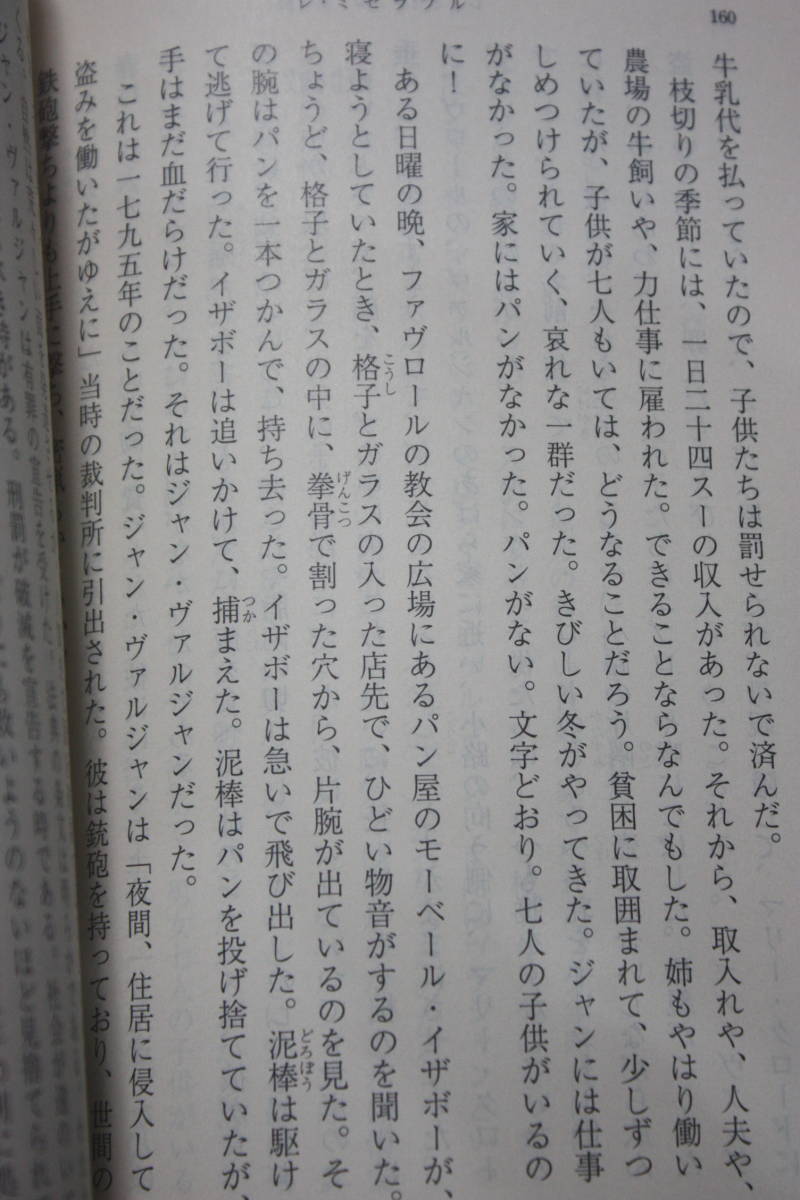 160
レ・ミゼラブル
牛乳代を払っていたので、子供たちは罰せられないで済んだ。
枝切りの季節には、一日二十四スーの収入があった。それから、取入れや、人夫や、
農場の牛飼いや、力仕事に雇われた。できることならなんでもした。姉もやはり働い
ていたが、子供が七人もいては、どうなることだろう。貧困に取囲まれて、少しずつ
しめつけられていく、哀れな一群だった。きびしい冬がやってきた。ジャンには仕事
がなかった。家にはパンがなかった。パンがない。文字どおり。七人の子供がいるの
に！
ある日曜の晩、ファヴロールの教会の広場にあるパン屋のモーベール・イザボーが、
寝ようとしていたとき、格子とガラスの入った店先で、ひどい物音がするのを聞いた。
ちょうど、格子とガラスの中に、拳骨で割った穴から、片腕が出ているのを見た。そ
の腕はパンを一本つかんで、持ち去った。イザボーは急いで飛び出した。泥棒は駆け
て逃げて行った。イザボーは追いかけて、捕まえた。泥棒はパンを投げ捨てていたが、
手はまだ血だらけだった。それはジャン・ヴァルジャンだった。
これは一七九五年のことだった。ジャン・ヴァルジャンは「夜間、住居に侵入して
盗みを働いたがゆえに」当時の裁判所に引出された。彼は銃砲を持っており、世間の
鉄砲撃ちよりも上手に撃ち、
ジャン・ヴァルジャンは有罪の宣告を受けた。
時がある。刑罰が破滅を宣告する時である。